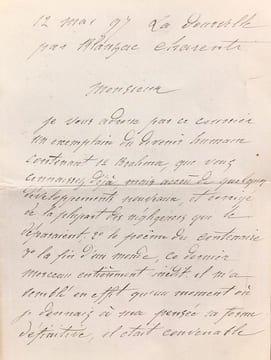 12 mai 97 La Pouzelle
par Blanzac Charente
Monsieur
je vous adresse par ce courrier
un exemplaire du devenir humain
contenant 1° Brahma, que vous
connaissez déjà, mais accru de quelques
développements nouveaux, et corrigé
de la plupart des négligences qui le
déparaient, 2° le poème du centenaire
3° la fin d'un monde, ce dernier
morceau entièrement inédit il m'a
semblé en effet qu'au moment où
je donnais à ma pensée sa forme
définitive, il était convenable